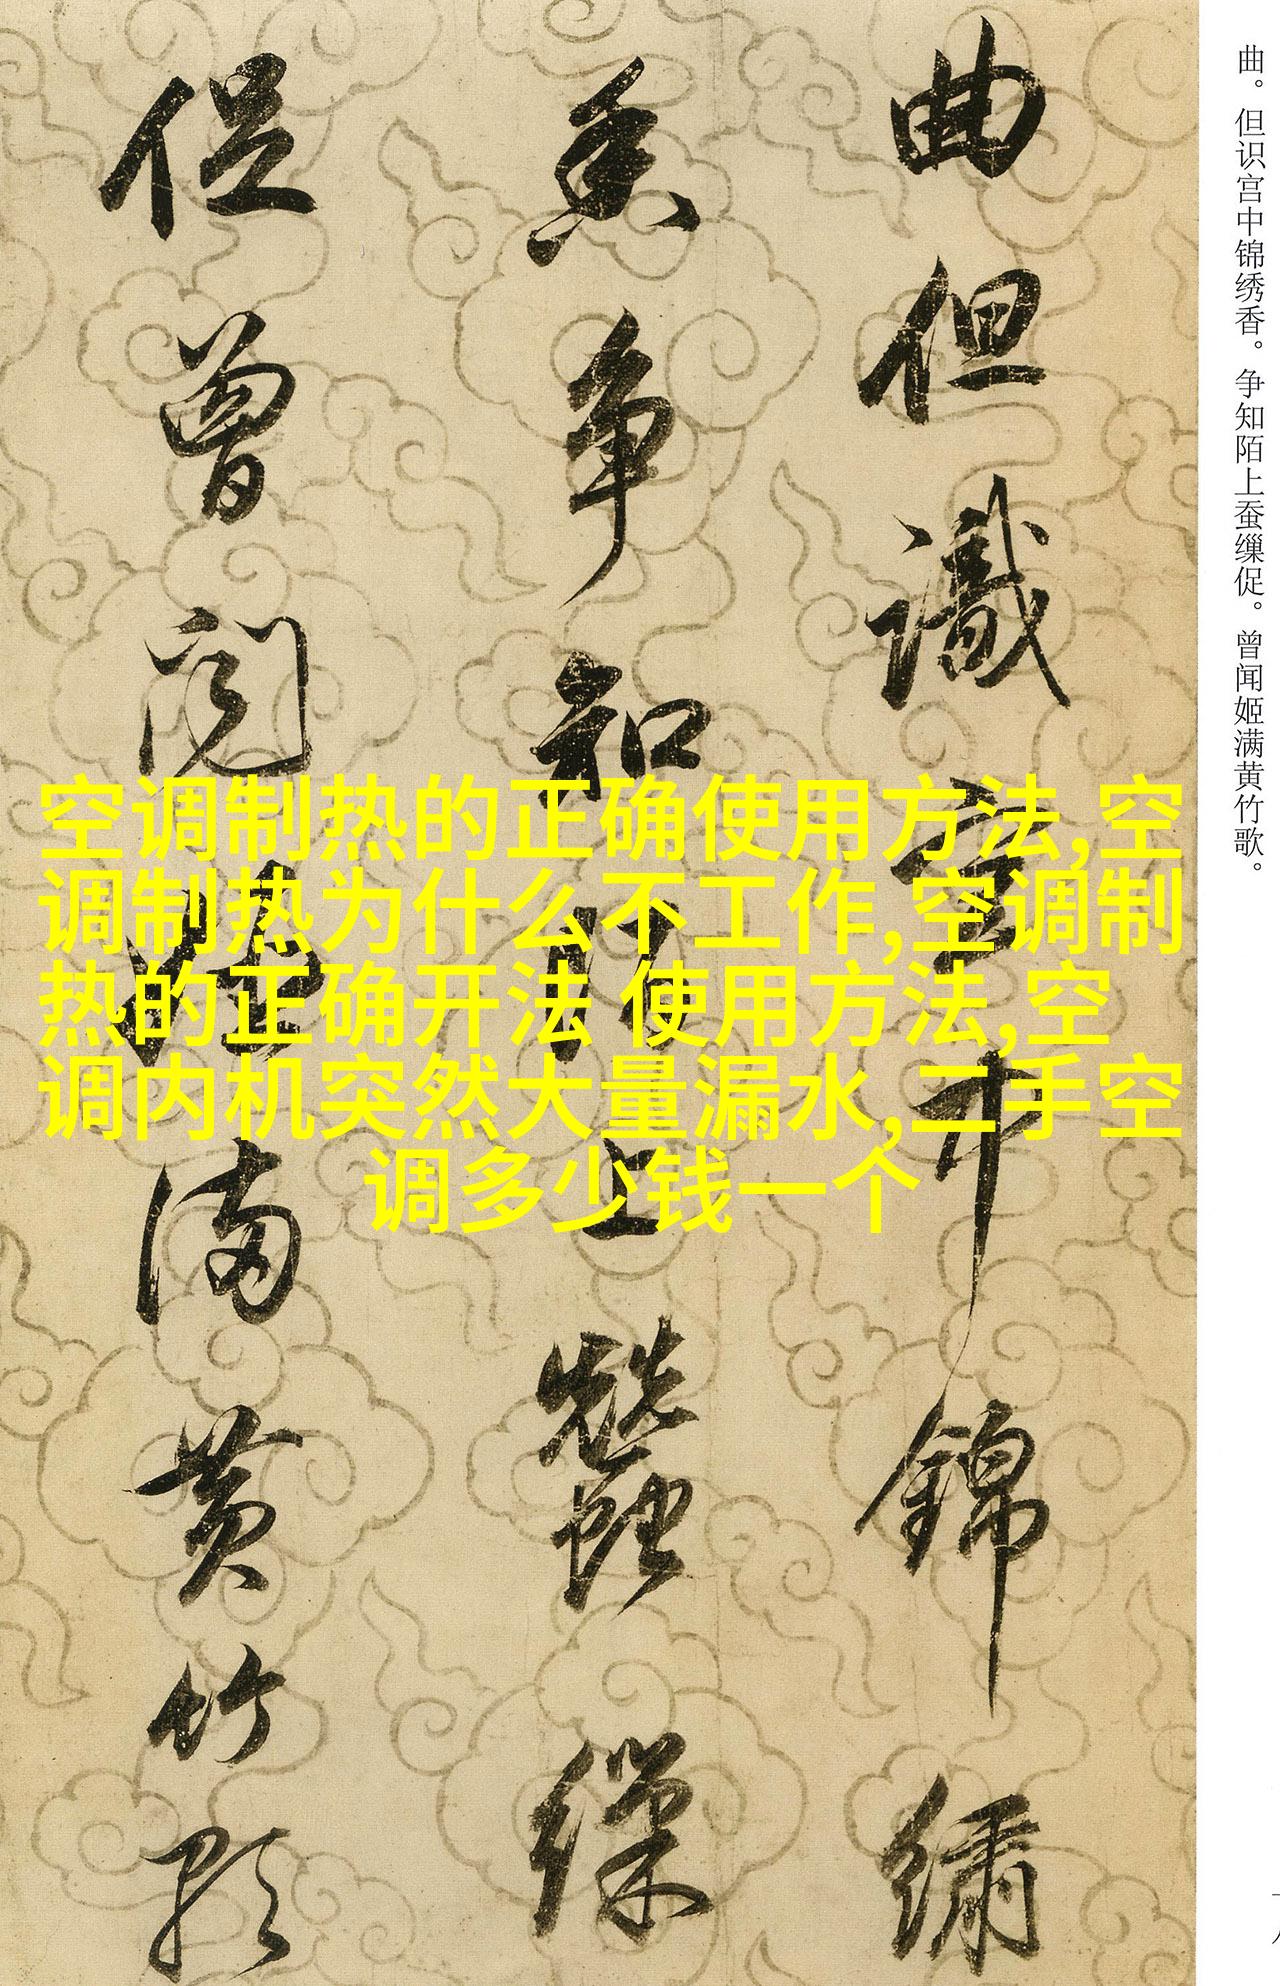 曲。但识宫中锦绣香。争知陌上蚕缫促。曾闻姬满黄竹歌。
曲但識宫中錦繡
香争知陌上蠶繅
促曾聞姬滿黄竹歌
空调制热的正确使用方法,空
调制热为什么不工作,空调制
热的正确开法 使用方法,空
调内机突然大量漏水,二手空
调多少钱一个